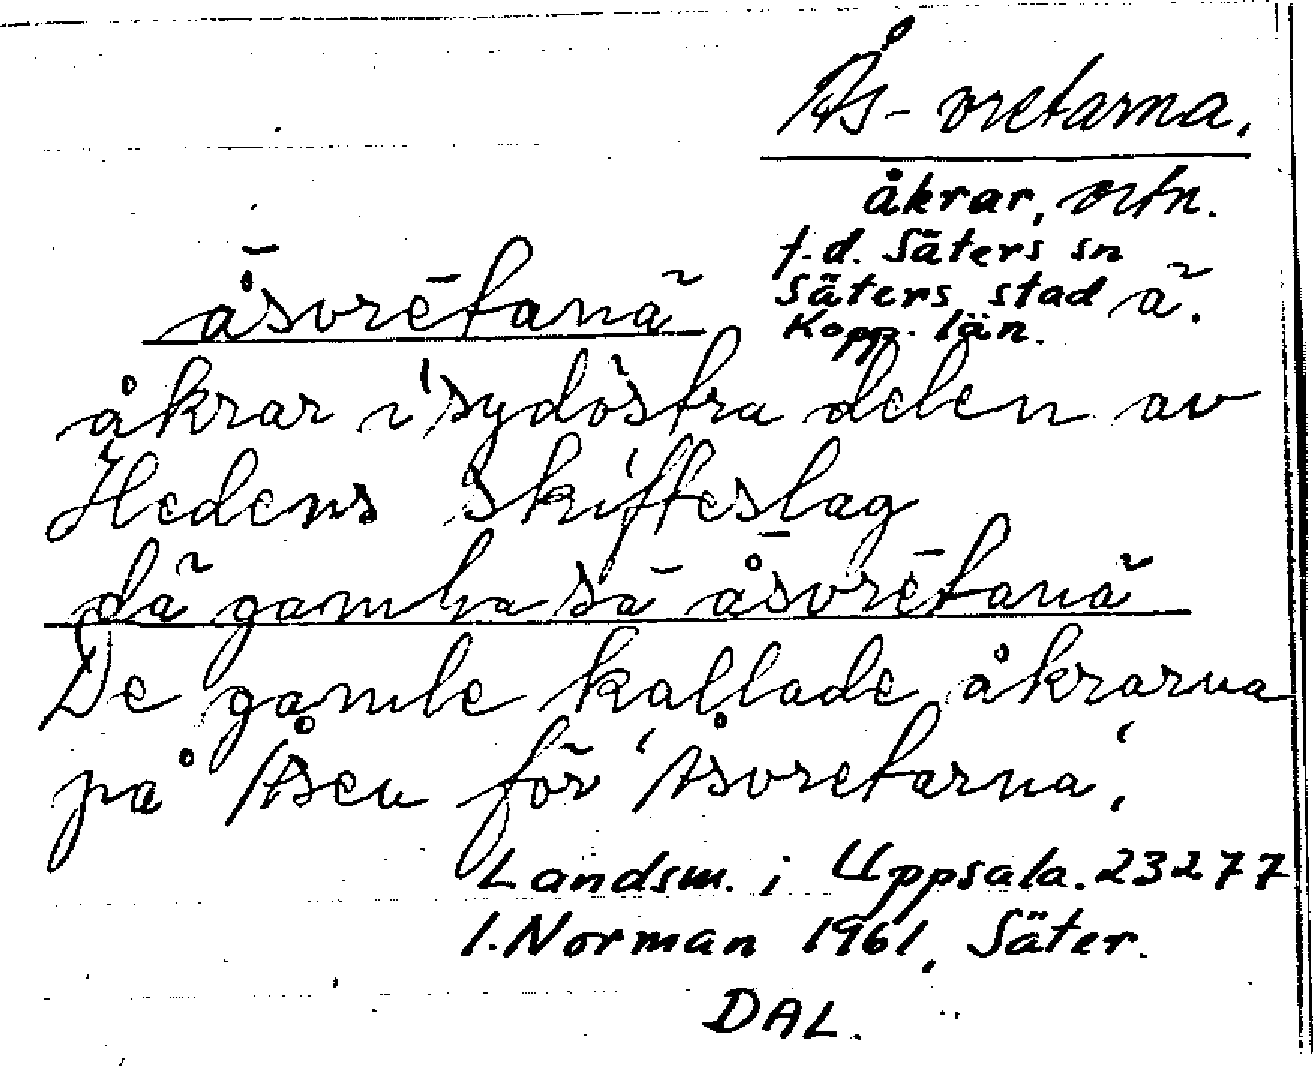 Ås-vretarna.
åkrar, vretn.
f.d. Säters sn
Säters stad ã.
Kopp. län.
å̄svrētanã
åkrar i sydöstra delen av
Hedens skifteslag
dã gamla sā å̄svrētanã
De gamle kallade åkrarna
på Åsen för 'Åsvretarna'.
Landsm. i Uppsala. 23277
I. Norman 1961, Säter.
DAL.